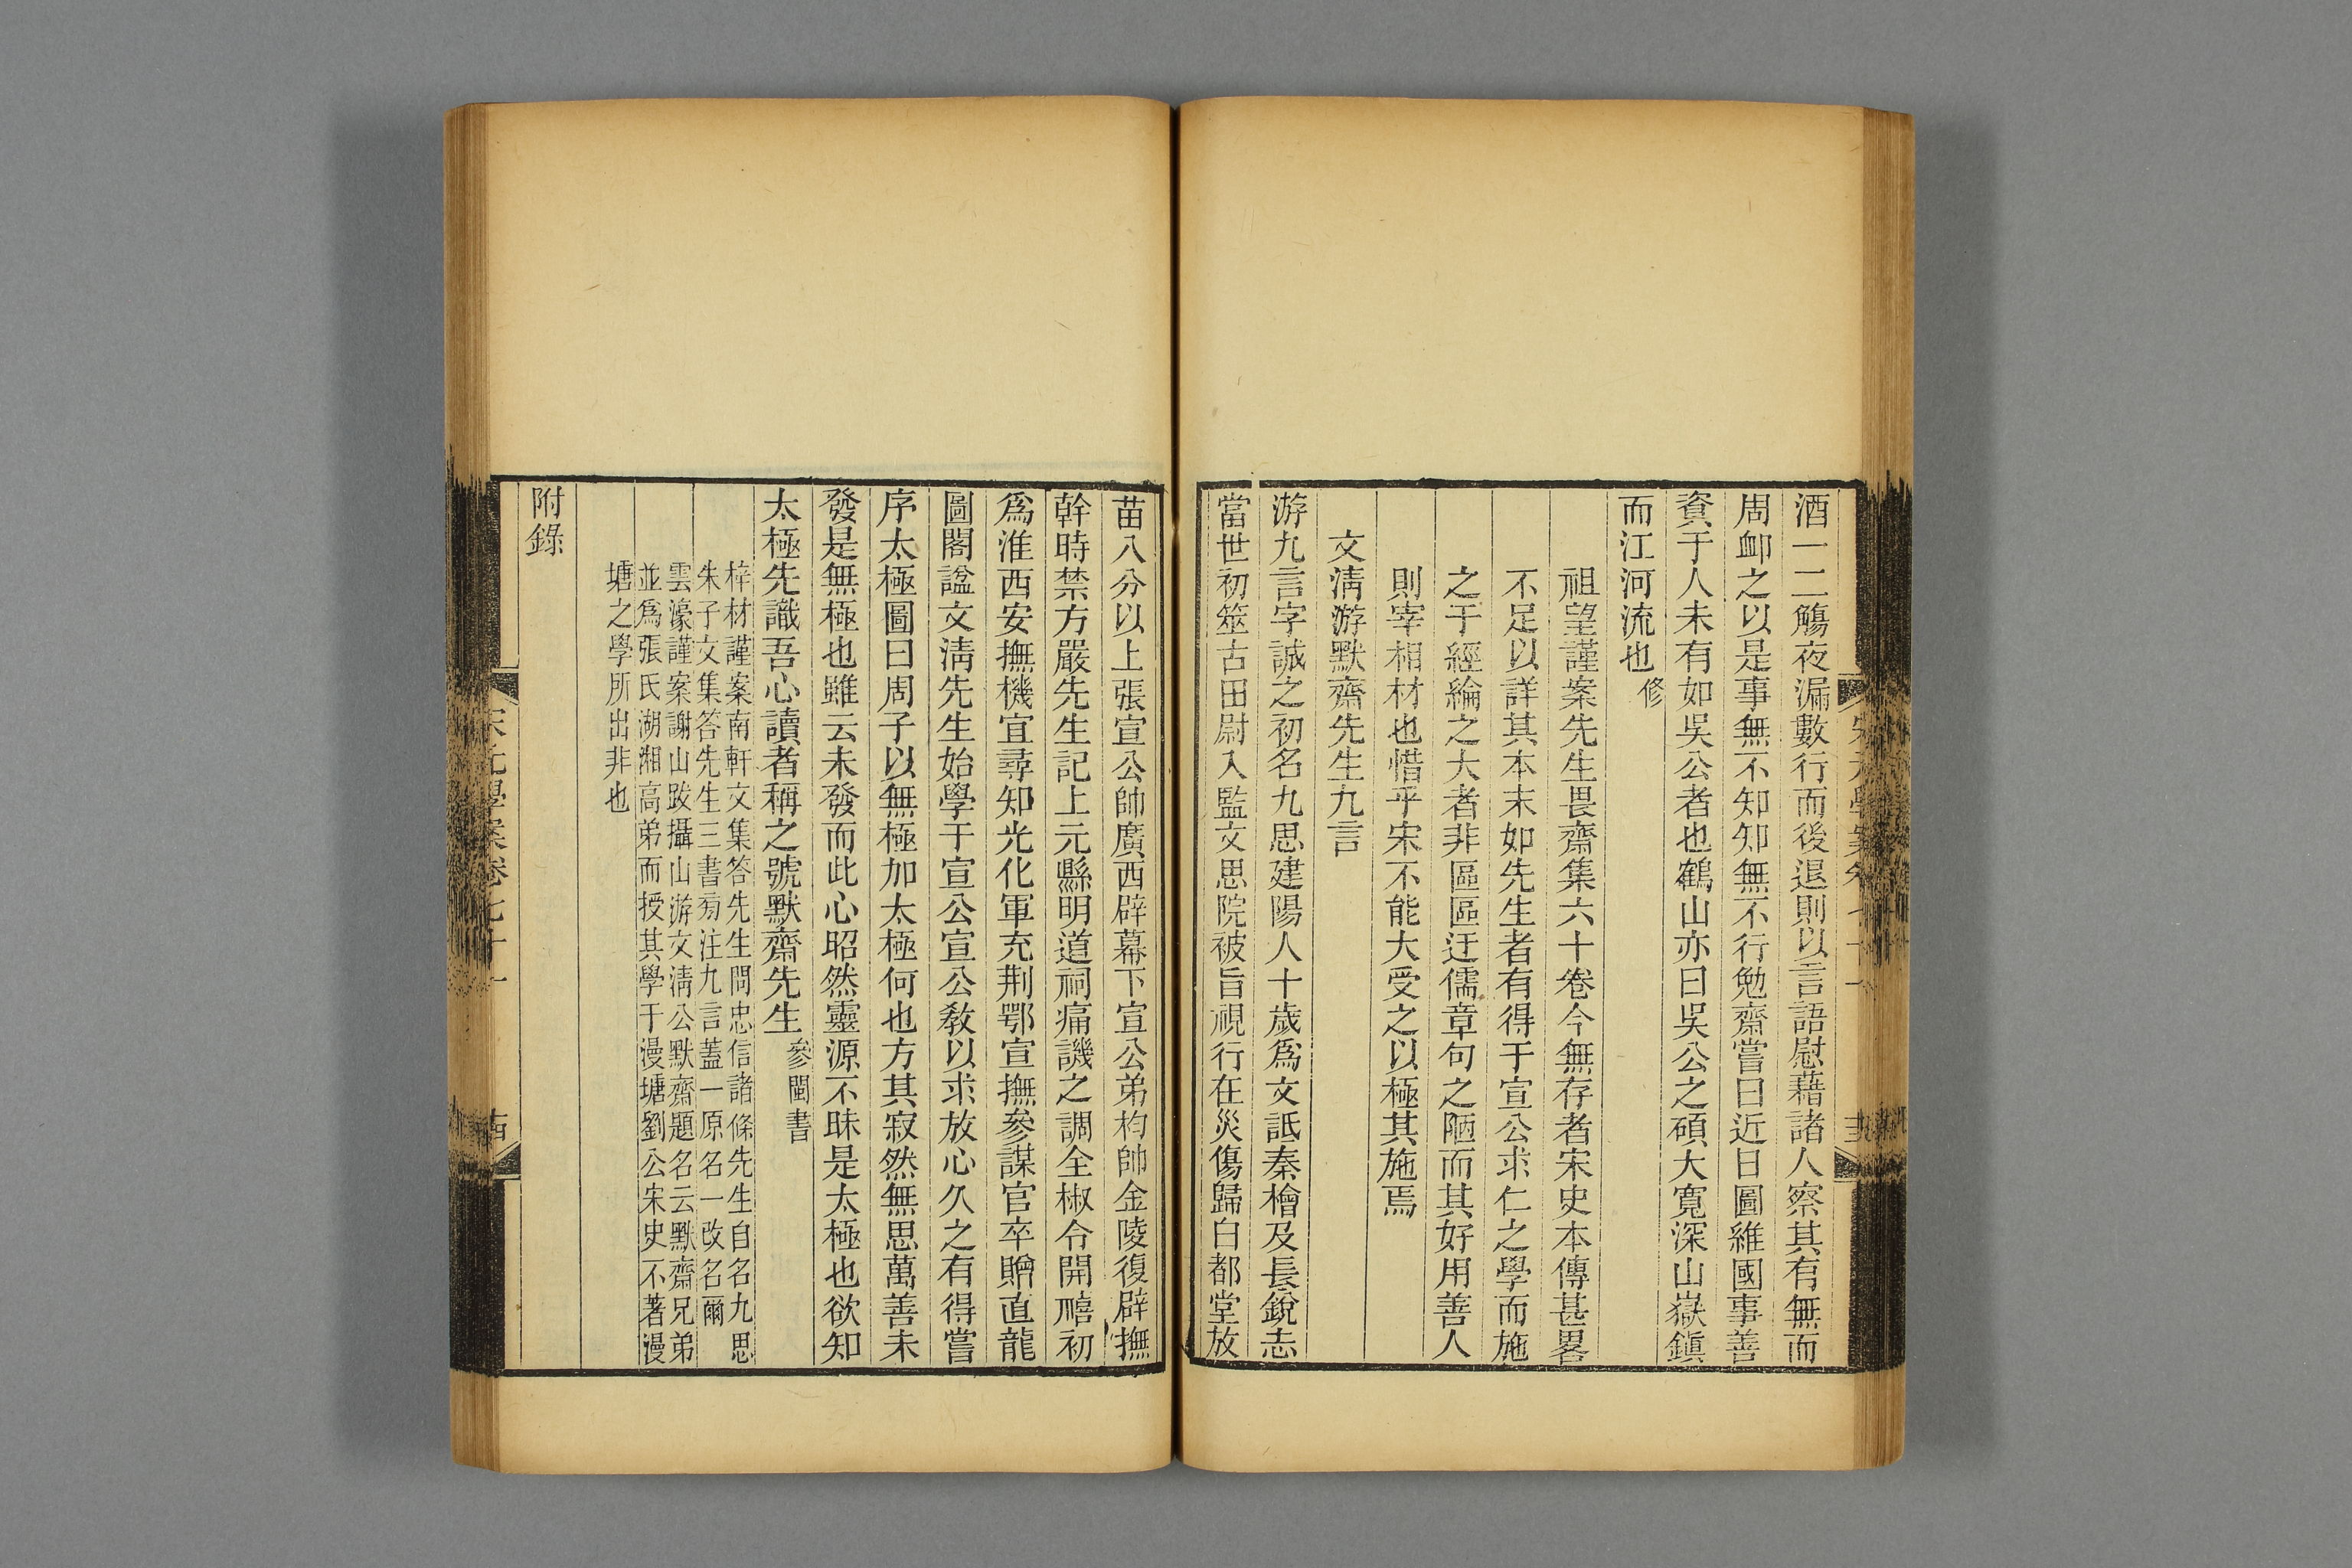 酒一二觴夜漏數行而後退則以言語慰藉諸人察其有無而
周卹之以是事無不知知無不行勉齋嘗曰近日圖維國事善
資于人未有如吳公者也鶴山亦曰吳公之碩大寬深山嶽鎭
而江河流也修
祖望謹案先生畏齋集六十卷今無存者宋史本傳甚畧
不足以詳其本末如先生者有得于宣公求仁之學而施
之于經綸之大者非區區迂儒章句之陋而其好用善人
則宰相材也惜乎宋不能大受之以極其施焉
文淸游默齋先生九言
游九言字誠之初名九思建陽人十歲爲文詆秦檜及長銳志
當世初筮古田尉入監文思院被旨視行在災傷歸白都堂放
苗八分以上張宣公帥廣西辟幕下宣公弟杓帥金陵復辟撫
幹時禁方嚴先生記上元縣明道祠痛譏之調全椒令開禧初
爲淮西安撫機宜尋知光化軍充荆鄂宣撫參謀官卒贈直龍
圖閣諡文淸先生始學于宣公宣公教以求放心久之有得嘗
序太極圖曰周子以無極加太極何也方其寂然無思萬善未
發是無極也雖云未發而此心昭然靈源不昧是太極也欲知
太極先識吾心讀者稱之號默齋先生參閩書
梓材謹案南軒文集答先生問忠信諸條先生自名九思
朱子文集答先生三書㫄注九言蓋一原名一改名爾
雲濠謹案謝山跋攝山游文淸公默齋題名云默齋兄弟
並爲張氏湖湘高弟而授其學于漫塘劉公宋史不著漫
塘之學所出非也
附錄
宋元學案卷七十一
古